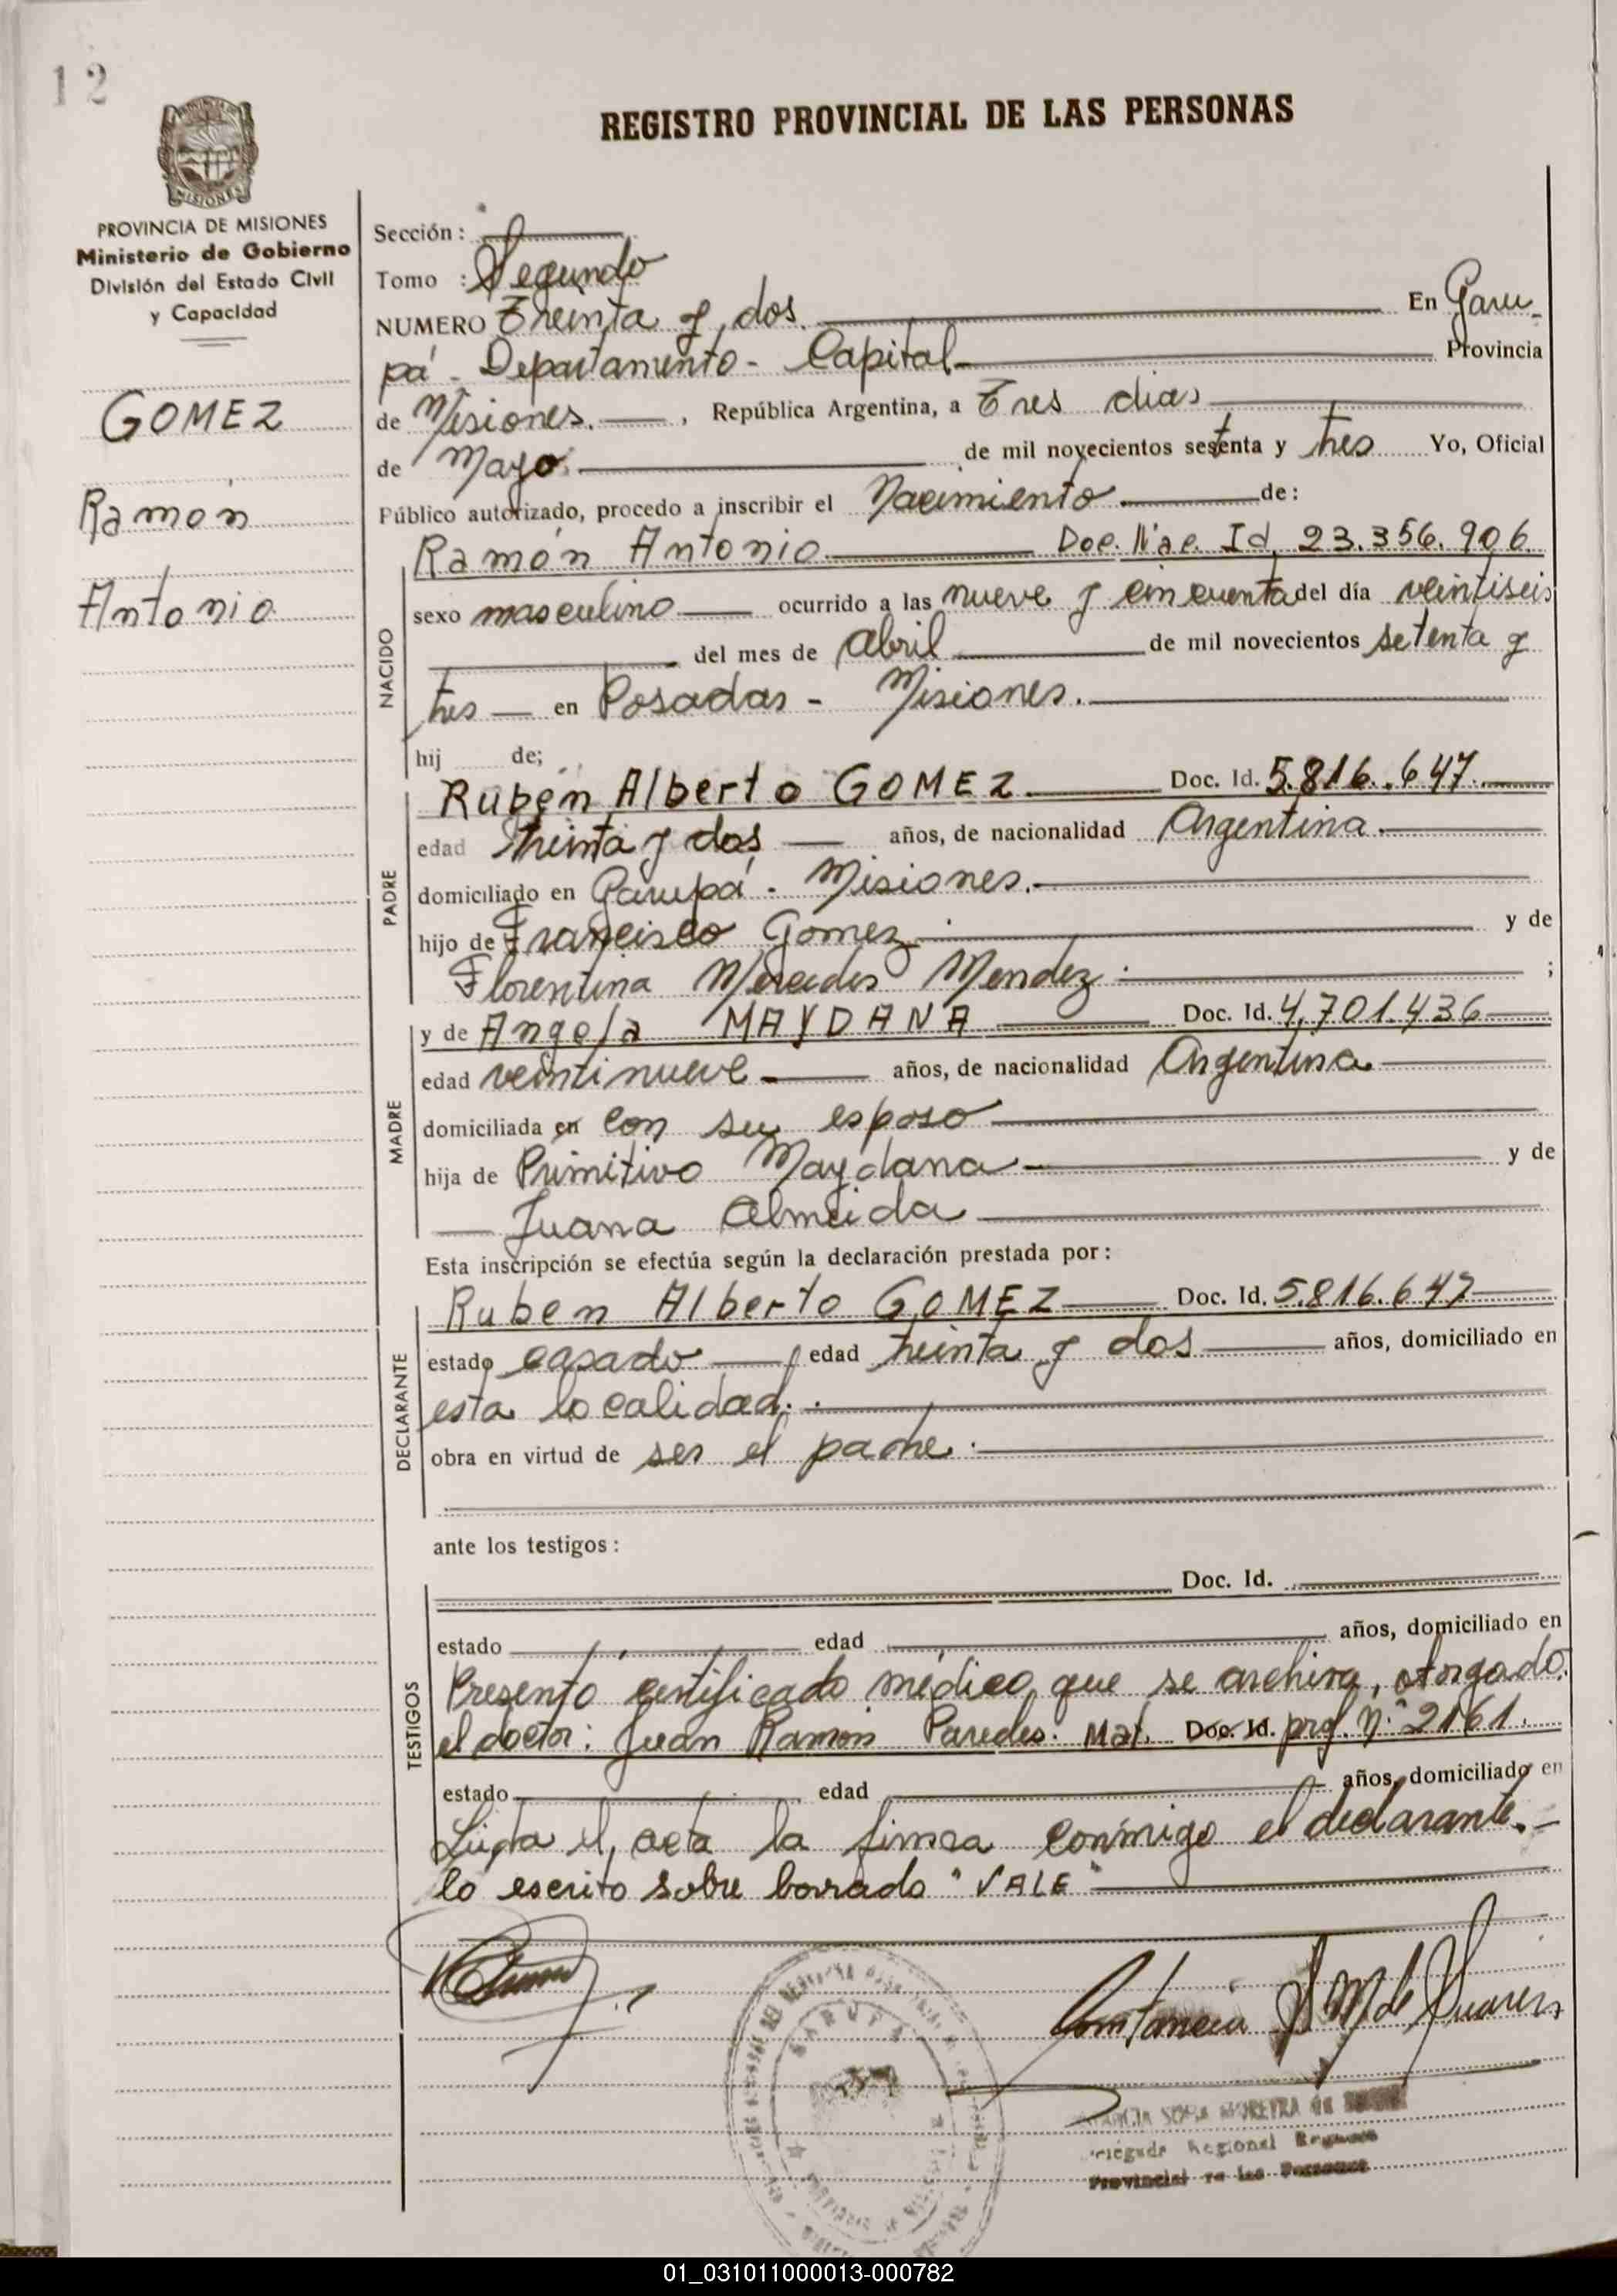 12
REGISTRO PROVINCIAL DE LAS PERSONAS
MISIONES
PROVINCIA DE MISIONES
Ministerio de Gobierno
División del Estado Civil
y Capacidad
GOMEZ
Ramón
Antonio
Sección:
Tomo : Segundo
NUMERO Treinta y dos. En Garu-
pá - Departamento - Capital - Provincia
de Misiones. , República Argentina, a Tres dias
de Mayo. de mil novecientos setenta y tres Yo, Oficial
Público autorizado, procedo a inscribir el Nacimiento de:
Ramón Antonio Doc. Nac. Id. 23.356.906
NACIDO
sexo masculino ocurrido a las nueve y cincuenta del día veintiseis
del mes de Abril de mil novecientos setenta y
tres en Posadas - Misiones.
hij de;
PADRE
Rubén Alberto GOMEZ Doc. Id. 5.816.647
edad treinta y dos años, de nacionalidad Argentina
domiciliado en Garupá - Misiones.
hijo de Francisco Gomez y de
Florentina Mercedes Mendez ;
MADRE
y de Angela MAYDANA Doc. Id. 4.701.436
edad veintinueve años, de nacionalidad Argentina
domiciliada en con su esposo
hija de Primitivo Maydana y de
Juana Almeida
Esta inscripción se efectúa según la declaración prestada por:
DECLARANTE
Ruben Alberto GOMEZ Doc. Id. 5.816.647
estado casado edad treinta y dos años, domiciliado en
esta localidad.
obra en virtud de ser el padre.
ante los testigos:
TESTIGOS
Doc. Id.
estado edad años, domiciliado en
Presento certificado médico que se archiva, otorgado
el doctor: Juan Ramón Paredes. Mat. Doc. Id. prof. Nº 2161.
estado edad años, domiciliado en
Leída el acta la firma conmigo el declarante.-
lo escrito sobre borrado "VALE"
Constancia S M de Suarez
GARUPA
SOFIA MOREIRA DE
Regional
Provincial de las Personas
01_031011000013-000782